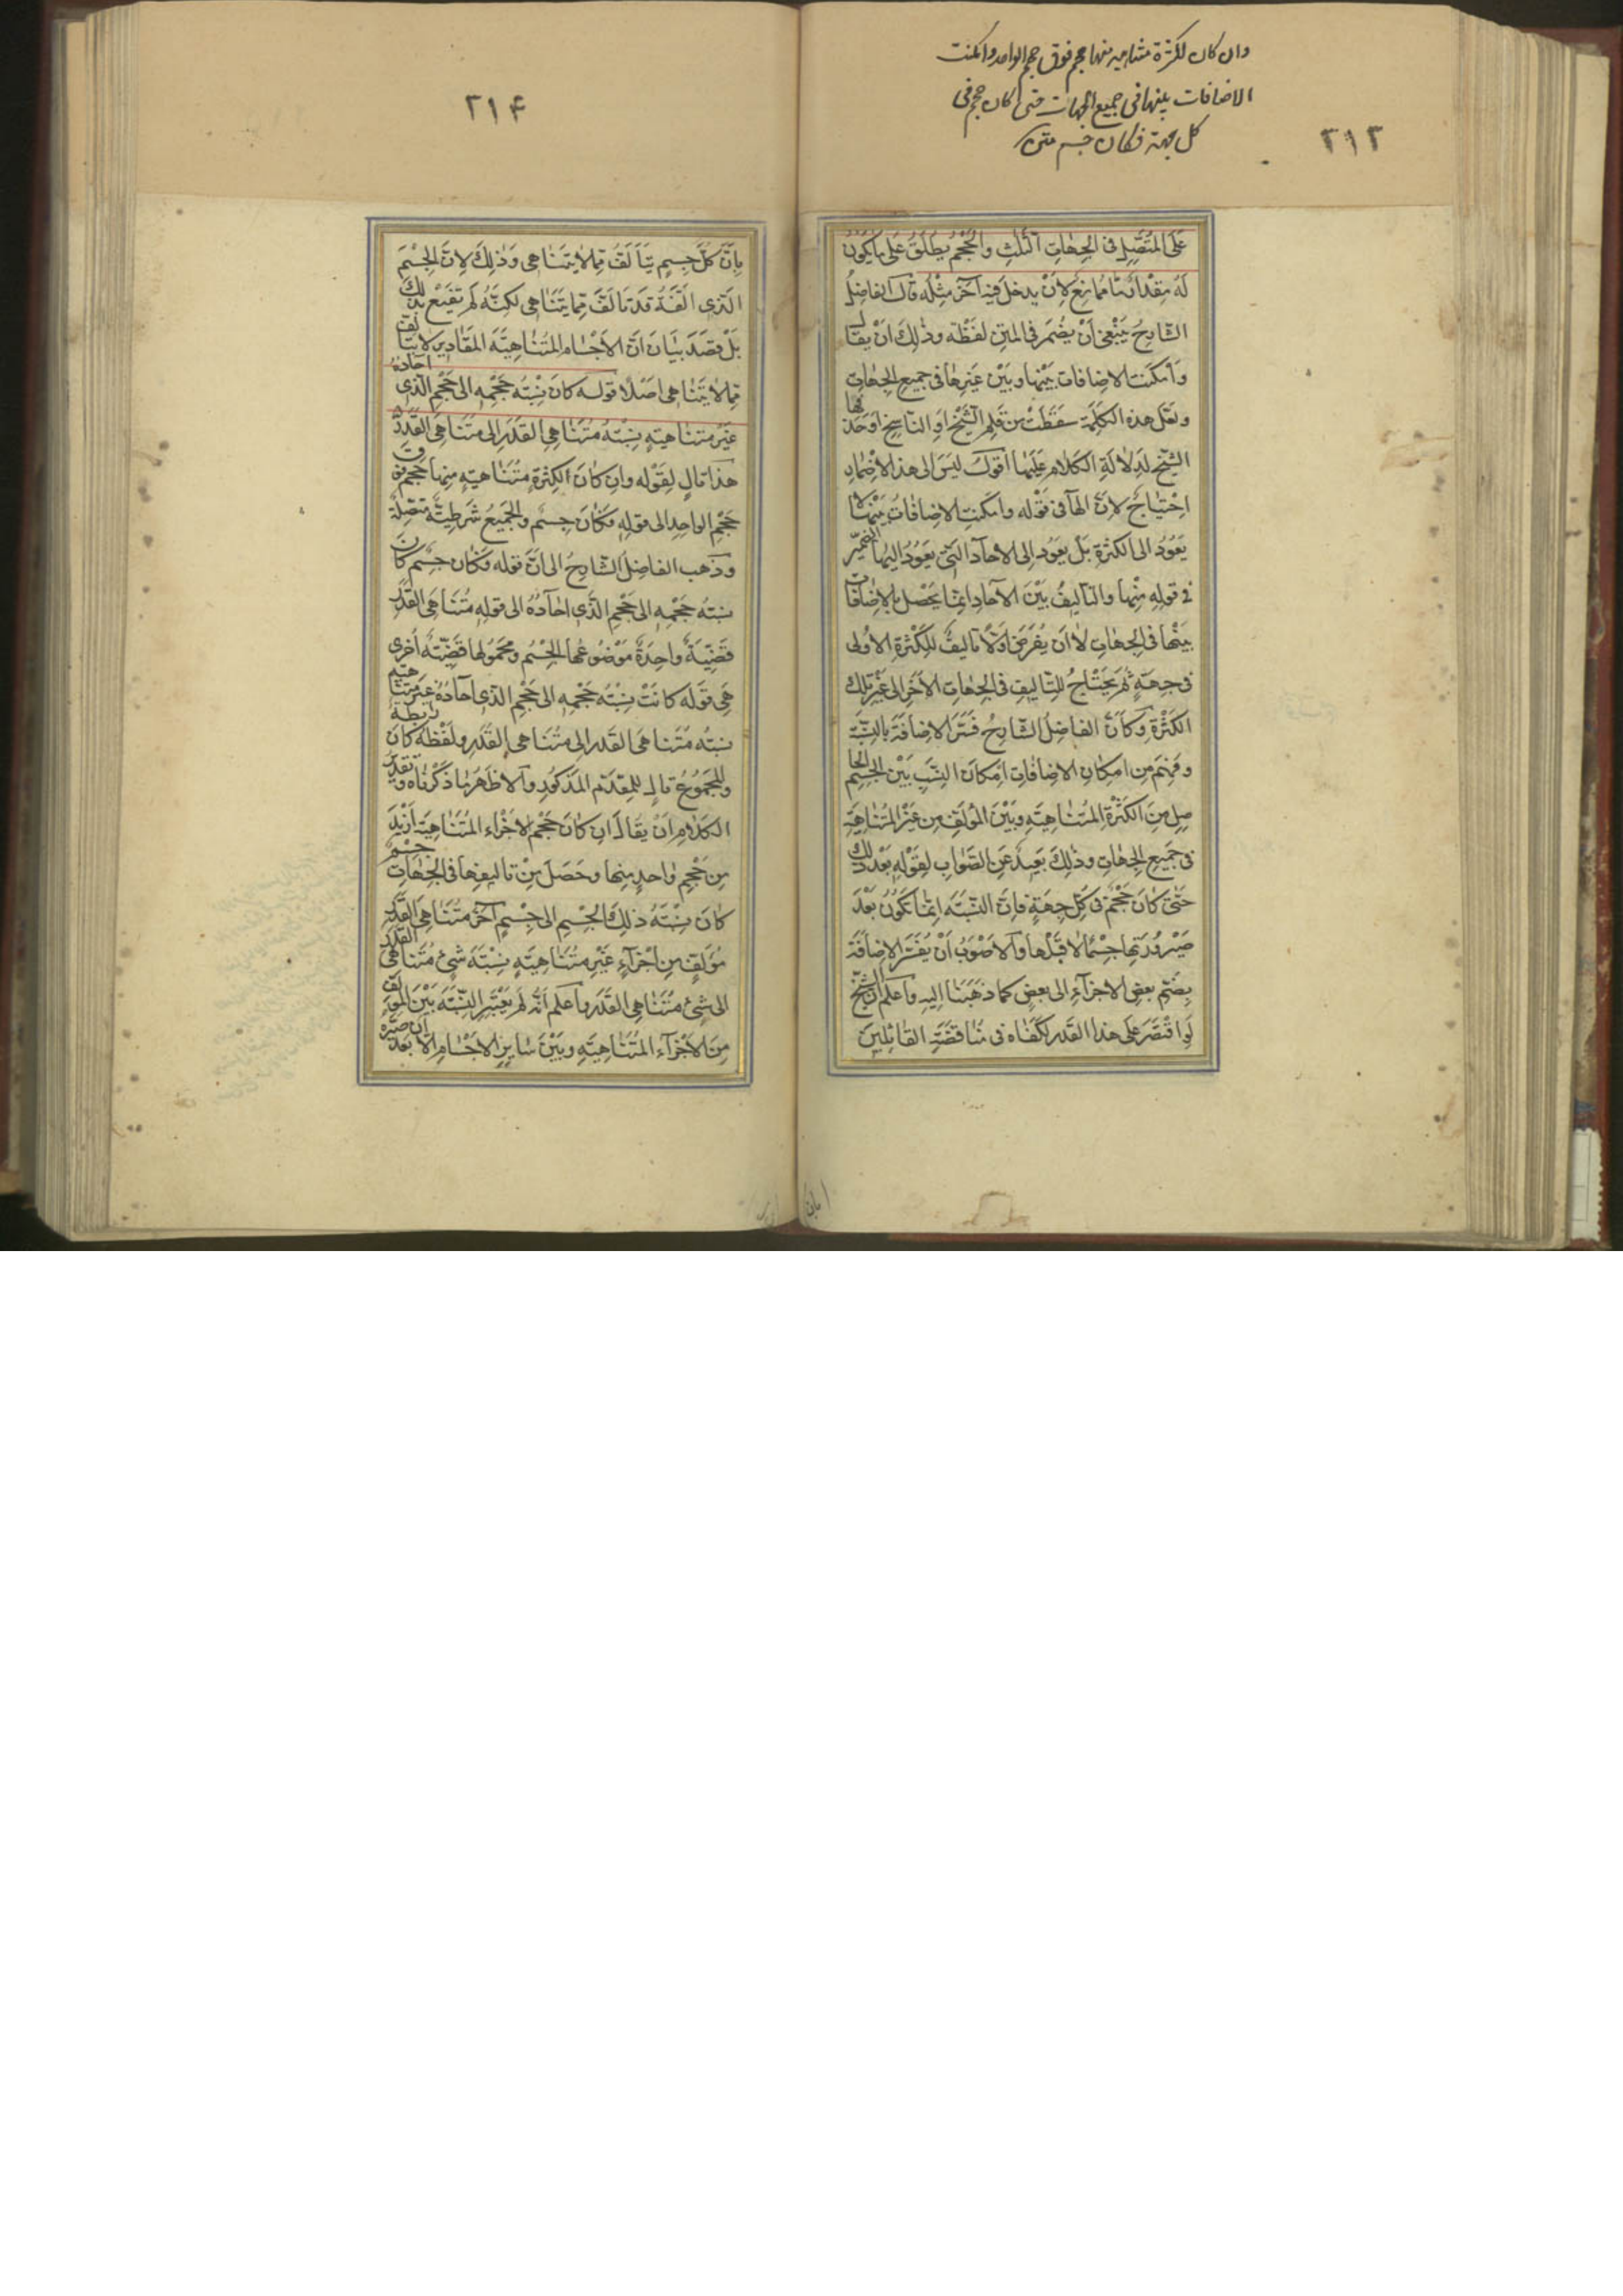 وان كان لكثرة متناهية منها حجم فوق حجم الواحد وامكنت
الاضافات بينها فى جميع الجهات حتى كان حجم فى
كل جهة فكان جسم
٢١٣
عَلَى المُتَّصِلِ فى الجِهَاتِ الثَّلٰثِ والحَجْمُ يُطلَقُ عَلى مَا يكُونُ
لَهُ مِقْدَارٌ مَّا مُمَانِعٌ لِاَنْ يدخلَ فيهِ آخَرُ مِثْلُه قالَ الفاضِلُ
الشّارِحُ يَنْبَغى اَنْ يُضْمَرَ فى المَتْنِ لَفظَةٌ وذٰلِكَ اَنْ يقالَ
وَاَمْكَنَت الاضافات بَيْنها وبَيْنَ غَيرِهَا فى جَميعِ الجِهَاتِ
ولَعَلّ هذه الكَلِمَةَ سَقَطَتْ مِن قَلَمِ الشَّيْخِ اَوِ النّاسِخِ اَوحَذَفَها
الشّيخُ لِدَلالَةِ الكَلامِ عَلَيهَا اَقولُ لَيسَ الى هذا الاِضْمَارِ
اِحْتِيَاجٌ لِاَنَّ الهَآ فى قَوْلِه وامكَنت الاِضافاتُ بَيْنهَا لا
يَعُوْدُ الى الكثرَةِ بَلْ يعَودُ الى الاحَادِ الّتى يَعُوْدُ اليها الضَّميرُ
فى قولِهِ مِنْها والتأليفُ بَيْنَ الاحَادِ اِنّما يَحْصُل بالاِضَافَاتِ
بَينْها فى الجِهَاتِ لا اَن يُفرَضَ اَوَّلًا تَاليفٌ للكَثْرَةِ الاُولى
فى جهَةٍ ثُمَّ يَحْتَاجُ للتّاليفِ فى الجِهَاتِ الاُخَرِ الى غَيْرِ تِلكَ
الكَثْرَةِ وكَاَنَّ الفاضِلَ الشّارِحَ فَسَّرَ الاِضَافَةَ بِالنِّسْبَةِ
وفَهِمَ مِن امكان الاِضَافَاتِ اِمكانَ النِّسَبِ بَيْنَ الجِسْمِ الحا
صِلِ مِنَ الكَثْرَةِ المُتَنَاهِيَةِ وبَيْنَ المُؤلَّفِ مِن غَيْرِ المُتَنَاهِيَةِ
فى جَميعِ الجِهَاتِ وذٰلِكَ بَعِيدٌ عَنِ الصَّوابِ لِقَوْلِهِ بَعْدَ ذلِكَ
حَتّى كَانَ حَجْمٌ فى كُلِّ جِهَةٍ فَاِنّ النِّسْبَةَ اِنّما تَكُونُ بَعْدَ
صَيْرُوْرَتِها جِسْمًا لا قَبْلَها والاَصْوَبُ اَنْ يُفَسَّرَ الاِضَافَةُ
بِضَمِّ بَعضِ الاجزآءِ الى بَعضٍ كما ذَهَبَنَا اِلَيهِ واَعْلَم اَنّ الشَّيْخَ
لَوِ اقْتَصَرَ عَلى هذا القَدر لَكَفَاه فى مُناقَضَةِ القَائلينَ
٢١۴
بِاَنَّ كُلَّ جِسمٍ يَتَألَّفُ مِمّا لا يتَنَاهى وَذٰلِكَ لِاَنّ الجِسْمَ
الّذى اَلَّفَهُ قَد تَاَلَّفَ مِمّا يَتَنَاهى لكِنَّهُ لَمْ يَقنَعْ بِذلِكَ
بَلْ قَصَدَ بَيَانَ اَنَّ الاَجْسَام المُتَنَاهِيَةَ المَقَادِيرِ لا يَتَألّفُ
مِمّا لا يَتَنَاهى اَصْلًا قوله كانَ نِسْبَةُ حَجْمِهِ الى حَجْمِ الّذى آحَادُهُ
غَيْرُ متناهيَةٍ نِسْبَةُ مُتَنَاهِى القَدْرِ الى مُتَنَاهِى القَدْرِ
هذا تَالٍ لِقَوْلِه واِن كانَ لِكَثْرَةٍ مُتَنَاهِيَةٍ مِنها حَجْمٌ فوقَ
حَجْمِ الواحِدِ الى قولِهِ فكَانَ جِسْمٌ والجَمِيعُ شَرطِيَّةٌ مُتّصِلَةٌ
وذَهَب الفاضِلُ الشّارِحُ الى اَنَّ قوله فكَانَ جِسْمٌ كانَ
نِسْبَةُ حَجْمِه الى حَجْمِ الّذى احَادُهُ الى قولِهِ مُتَنَاهِى القَدْرِ
قَضِيَّةٌ واحِدَةٌ مَوْضُوعُها الجِسْمُ ومَحْمُولُها قَضِيَّةٌ اُخرى
هى قَولُه كانَتْ نِسْبَةُ حَجْمِه الى حَجْمِ الّذى احَادُهُ غيرُ متناهيةٍ
نِسْبَةَ مُتَناهى القَدر الى مُتَنَاهى القَدَرِ ولَفْظَةُ كانَ رَابِطَةٌ
والمَجْمُوعُ تالٍ لِلمقَدَّمِ المَذكُورِ والاَظهَرُ مَا ذَكَرْناه وتقديرُ
الكَلامِ اَنْ يُقالَ اِن كانَ حَجْمُ الاَجْزاءِ المُتَنَاهِيَةِ اَزْيَدَ
مِن حَجْمِ واحدٍ مِنها وحَصَلَ مِنْ تاليفِها فى الجِهَاتِ جِسْمٌ
كانَ نِسْبَةُ ذٰلِكَ الجِسْمِ الى جِسْمٍ آخَرَ مُتَنَاهى القَدْرِ
مُؤَلَّفٍ مِن اَجْزَآءٍ غَيْرِ مُتَنَاهِيَةٍ نِسْبَةَ شَئٍ مُتَناهى القَدْرِ
الى شئٍ مُتَنَاهى القَدَرِ واَعلَم اَنَّهُ لَم يَعْتَبِرِ النِّسْبَةَ بَيْنَ المؤلَّفِ
مِنَ الاَجْزَآءِ المُتَنَاهِيَةِ وبَيْنَ سَايرِ الاَجْسَامِ اِلّا بَعْدَ اَن صَيَّرَه